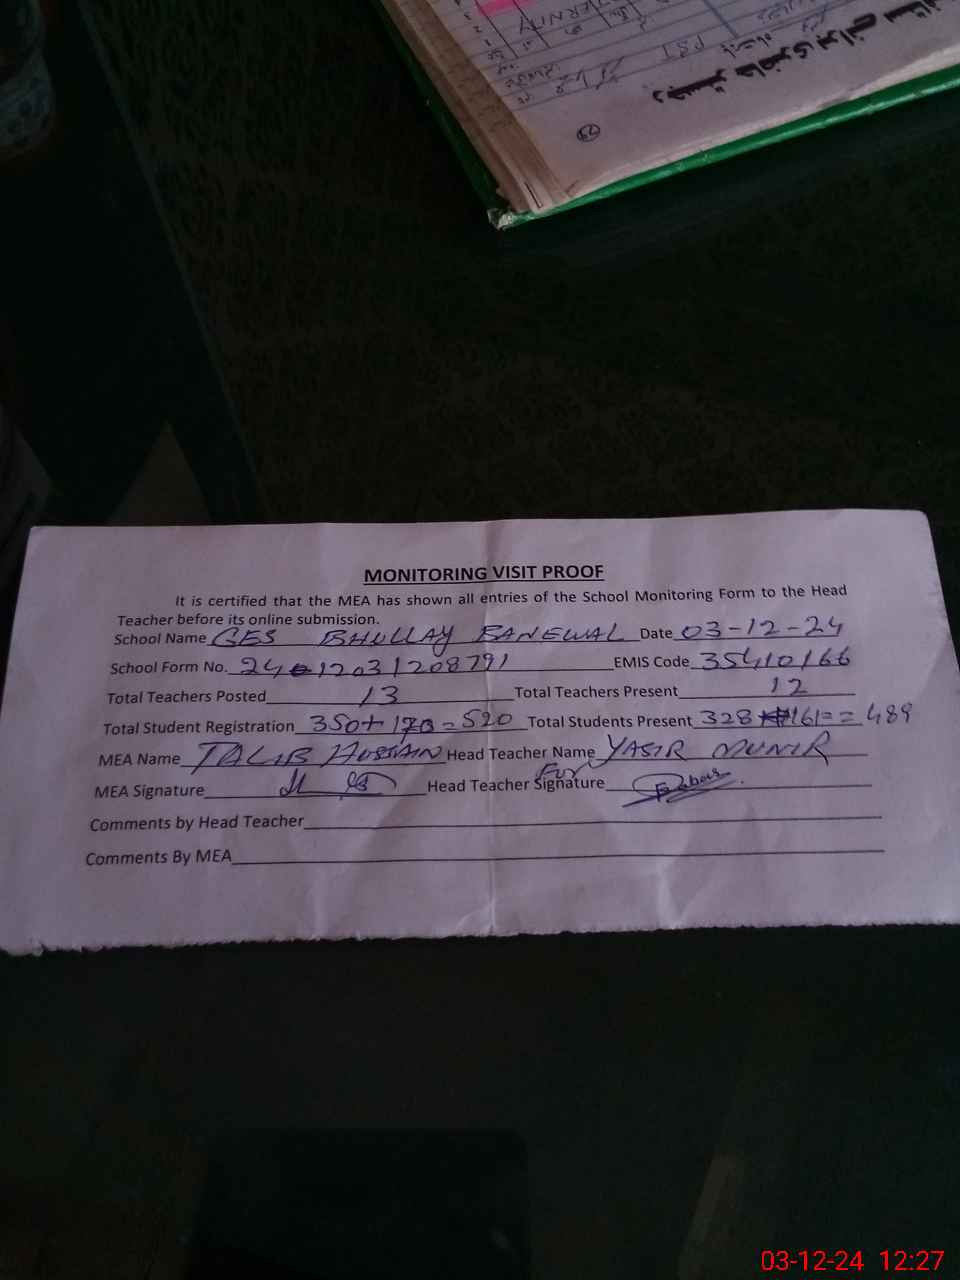 رجسٹر حاضری برائے
PST
79
MONITORING VISIT PROOF
It is certified that the MEA has shown all entries of the School Monitoring Form to the Head
Teacher before its online submission.
School Name GES BHULLAY BANEWAL Date 03-12-24
School Form No. 2412031208791 EMIS Code 35410166
Total Teachers Posted 13 Total Teachers Present 12
Total Student Registration 350+170=520 Total Students Present 328 + 161 = = 489
MEA Name TALIB HUSSAIN Head Teacher Name YASIR MUNIR
MEA Signature Head Teacher Signature For
Comments by Head Teacher
Comments By MEA
03-12-24 12:27